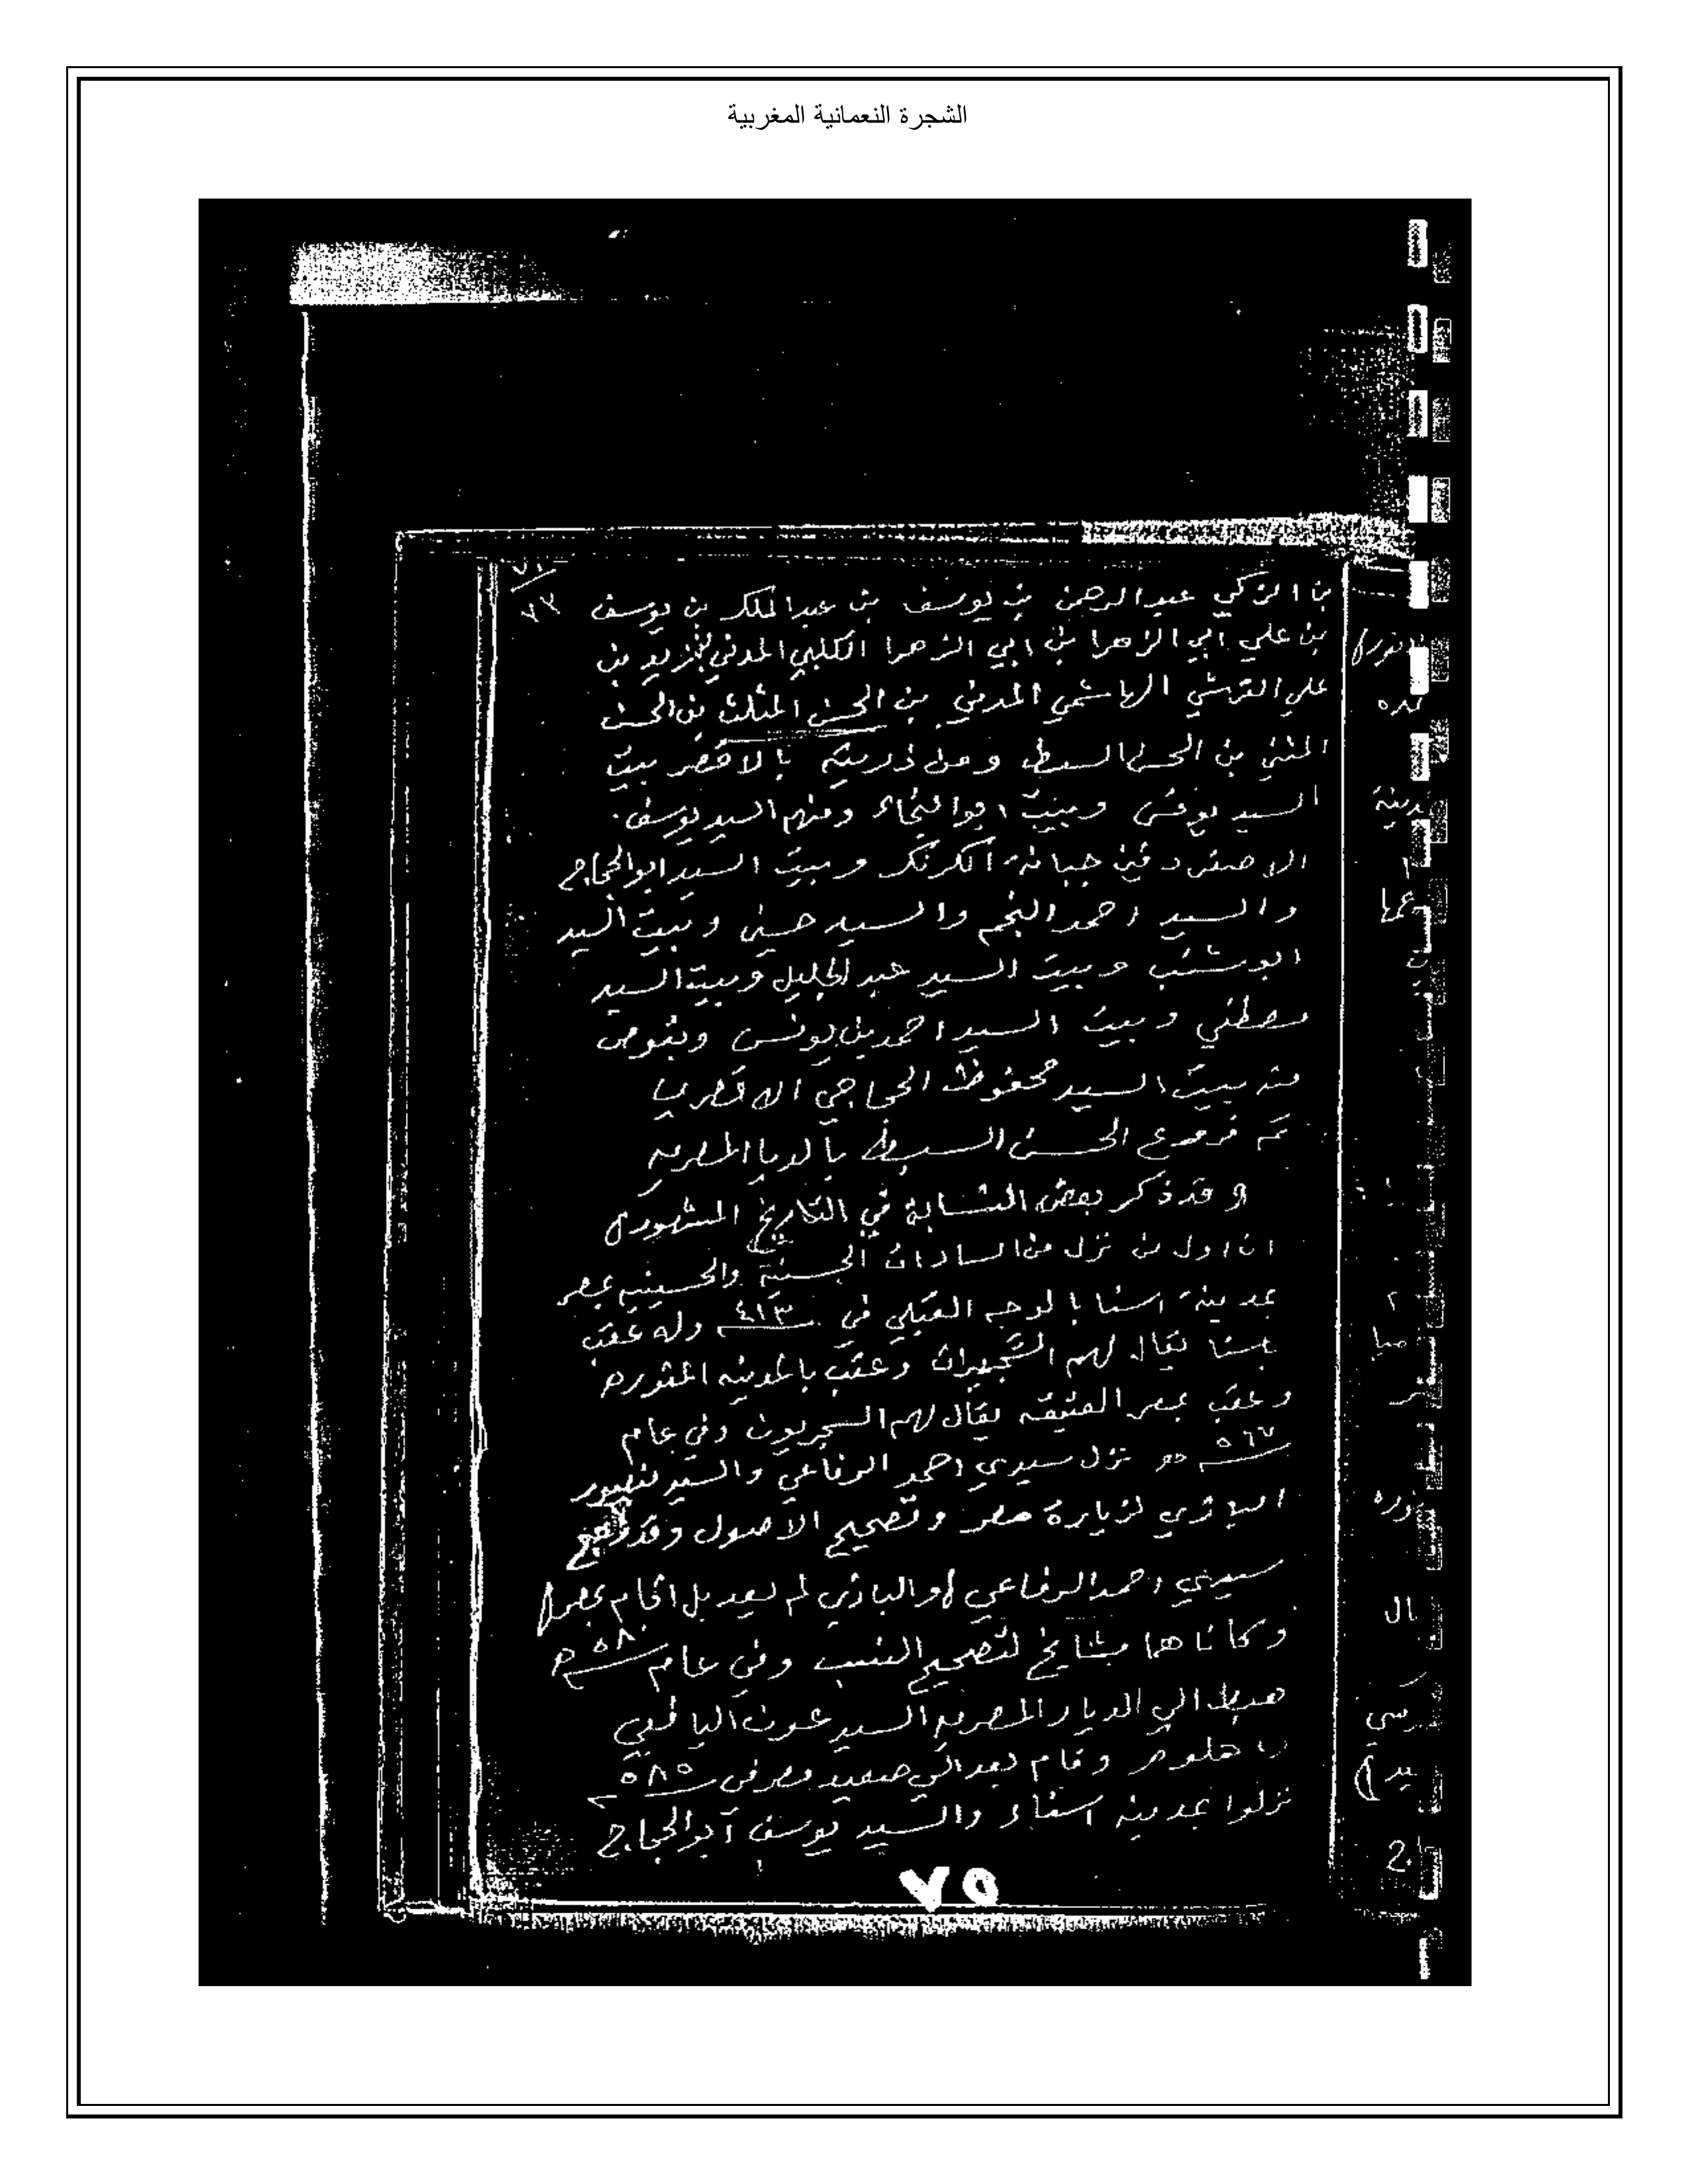 الشجرة النعمانية المغربية
٧٣
بن الزكي عبد الرحمن بن يوسف بن عبد الملك بن يوسف
بن علي ابي الزهرا بن ابي الزهرا الكلبي المدني بن زيد بن
علي القرشي الهاشمي المدني بن الحسن المثلث بن الحسن
المثني بن الحسن السبط ومن ذريته بالاقصر بيت
السيد يونس وبيت ابو النجاء ومنهم السيد يوسف
الاصغر دفين جبانة الكرنك وبيت السيد ابو الحجاج
والسيد احمد النجم والسيد حسين وبيت السيد
ابو شنب وبيت السيد عبد الجليل وبيت السيد
مصطفي وبيت السيد احمد بن يونس
منه بيت السيد محفوظ الحجاجي الاقصري
تم فروع الحسن السبط بالديا المصريه
وقد ذكر بعض النسابة في التاريخ المشهوره
ان اول من نزل من السادات الحسنية والحسينيه بمصر
بمدينة اسنا بالوجه القبلي في ٤١٣ وله عقب
باسنا يقال لهم الشجيرات وعقب بالمدينه المنوره
وعقب بمصر العتيقه يقال لهم الشجريون وفي عام
٥٦٧ هـ نزل سيدي احمد الرفاعي والسيد
البازي لزيارة مصر وتصحيح الاصول وقد رجع
سيدي احمد الرفاعي والبازي لم يعد بل اقام بمصر
وكانا هما مشايخ لتصحيح النسب وفي عام ٥٨٠ هـ
هبط الي الديار المصريه السيد عون اليافعي
وقام بعد الي صعيد مصر في ٥٨٥
نزلوا بمدينه اسناء والسيد يوسف ابو الحجاج
٧٥